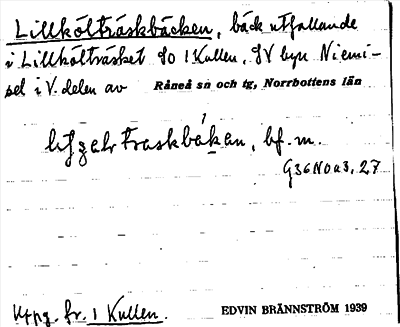 Lillkölträskbäcken, bäck utfallande
i Lillkölträsket SO 1 Kullen, SV byn Niemi-
sel i V. delen av Råneå sn och tg, Norrbottens län
bf. m.
G36N0a3, 27
Uppg. fr. 1 Kullen.
EDVIN BRÄNNSTRÖM 1939